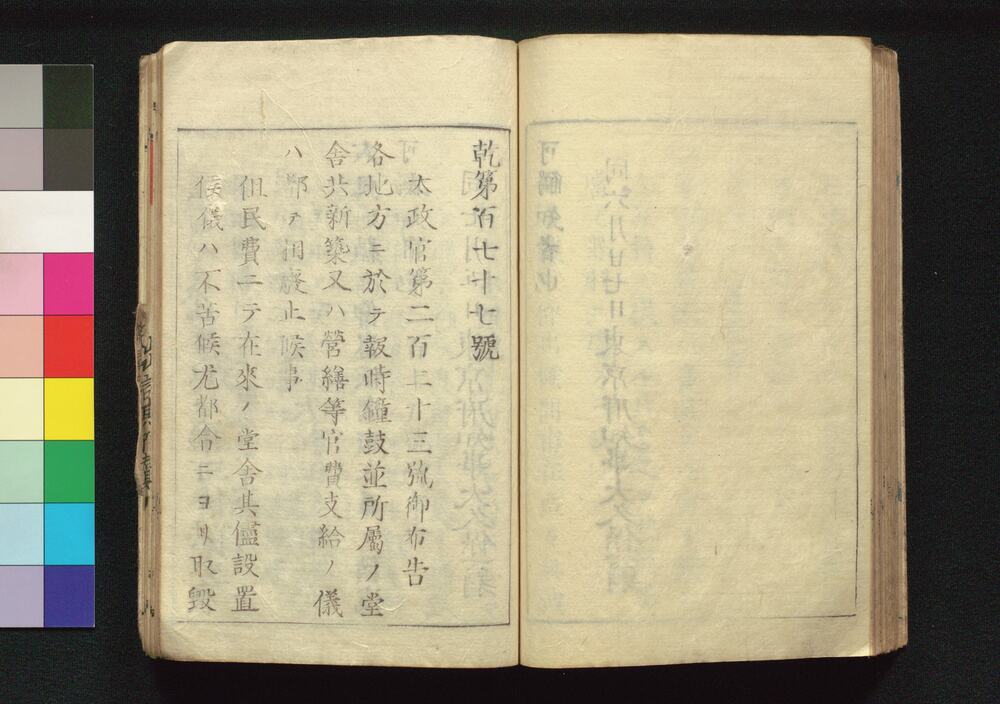 乾第百七十七號
太政官第二百二十三號御布告
各地方ニ於テ報時鐘鼓並所屬ノ堂
舍共新築又ハ營繕等官費支給ノ儀
ハ都テ相廢止候事
但民費ニテ在來ノ堂舍其儘設置
候儀ハ不苦候尤都合ニヨリ取毀